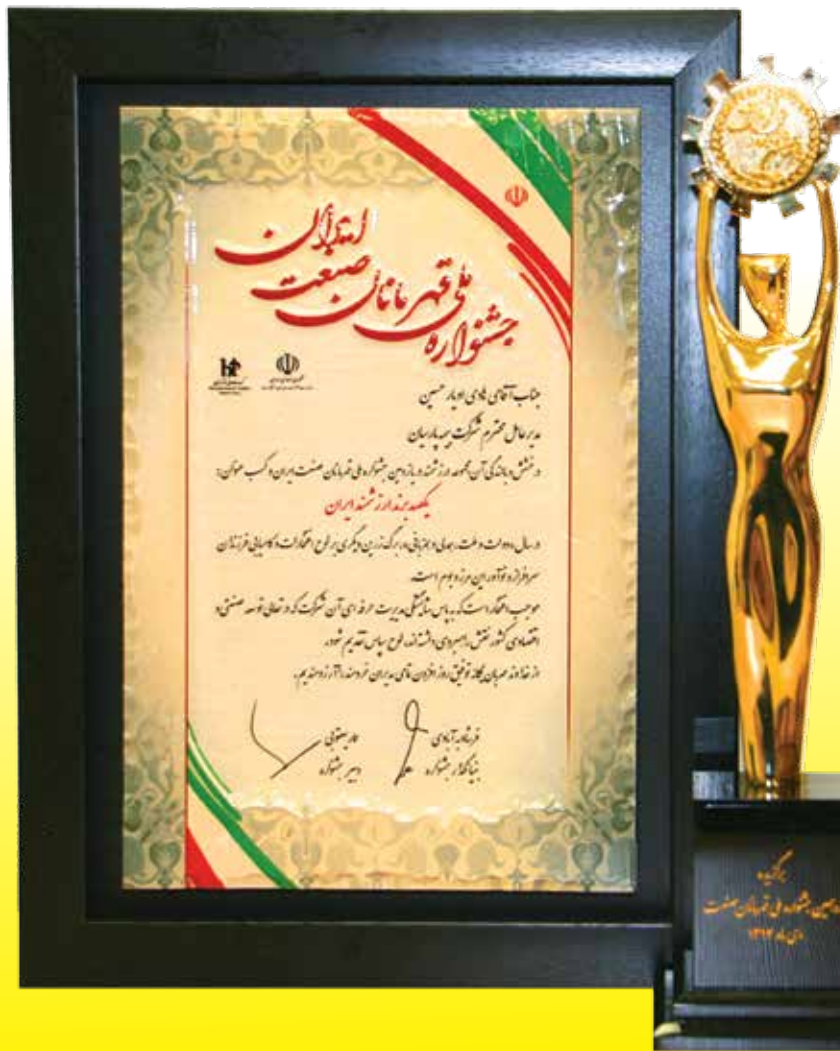 جشنواره ملی قهرمانان صنعت ایران
جناب آقای هادی اویار حسین
مدیر عامل محترم شرکت بیمه پارسیان
درخشش و ماندگاری آن مجموعه ارزشمند در یازدهمین جشنواره ملی قهرمانان صنعت ایران و کسب عنوان:
یکصد برند ارزشمند ایران
در سال دولت و ملت، همدلی و همزبانی، برگ زرین دیگری بر لوح افتخارات و کامیابی فرزندان
سرافراز و نوآور این مرز و بوم است.
موجب افتخار است که به پاس شایستگی مدیریت حرفه ای آن شرکت که در تعالی توسعه صنعتی و
اقتصادی کشور نقش راهبردی داشته اند، لوح سپاس تقدیم شود.
از خداوند مهربان یگانه توفیق روز افزون تمامی مدیران خردمند را آرزومندیم.
بنیانگذار جشنواره
دبیر جشنواره
برگزیده
جشنواره ملی قهرمانان صنعت
دی ماه ۱۳۹۴